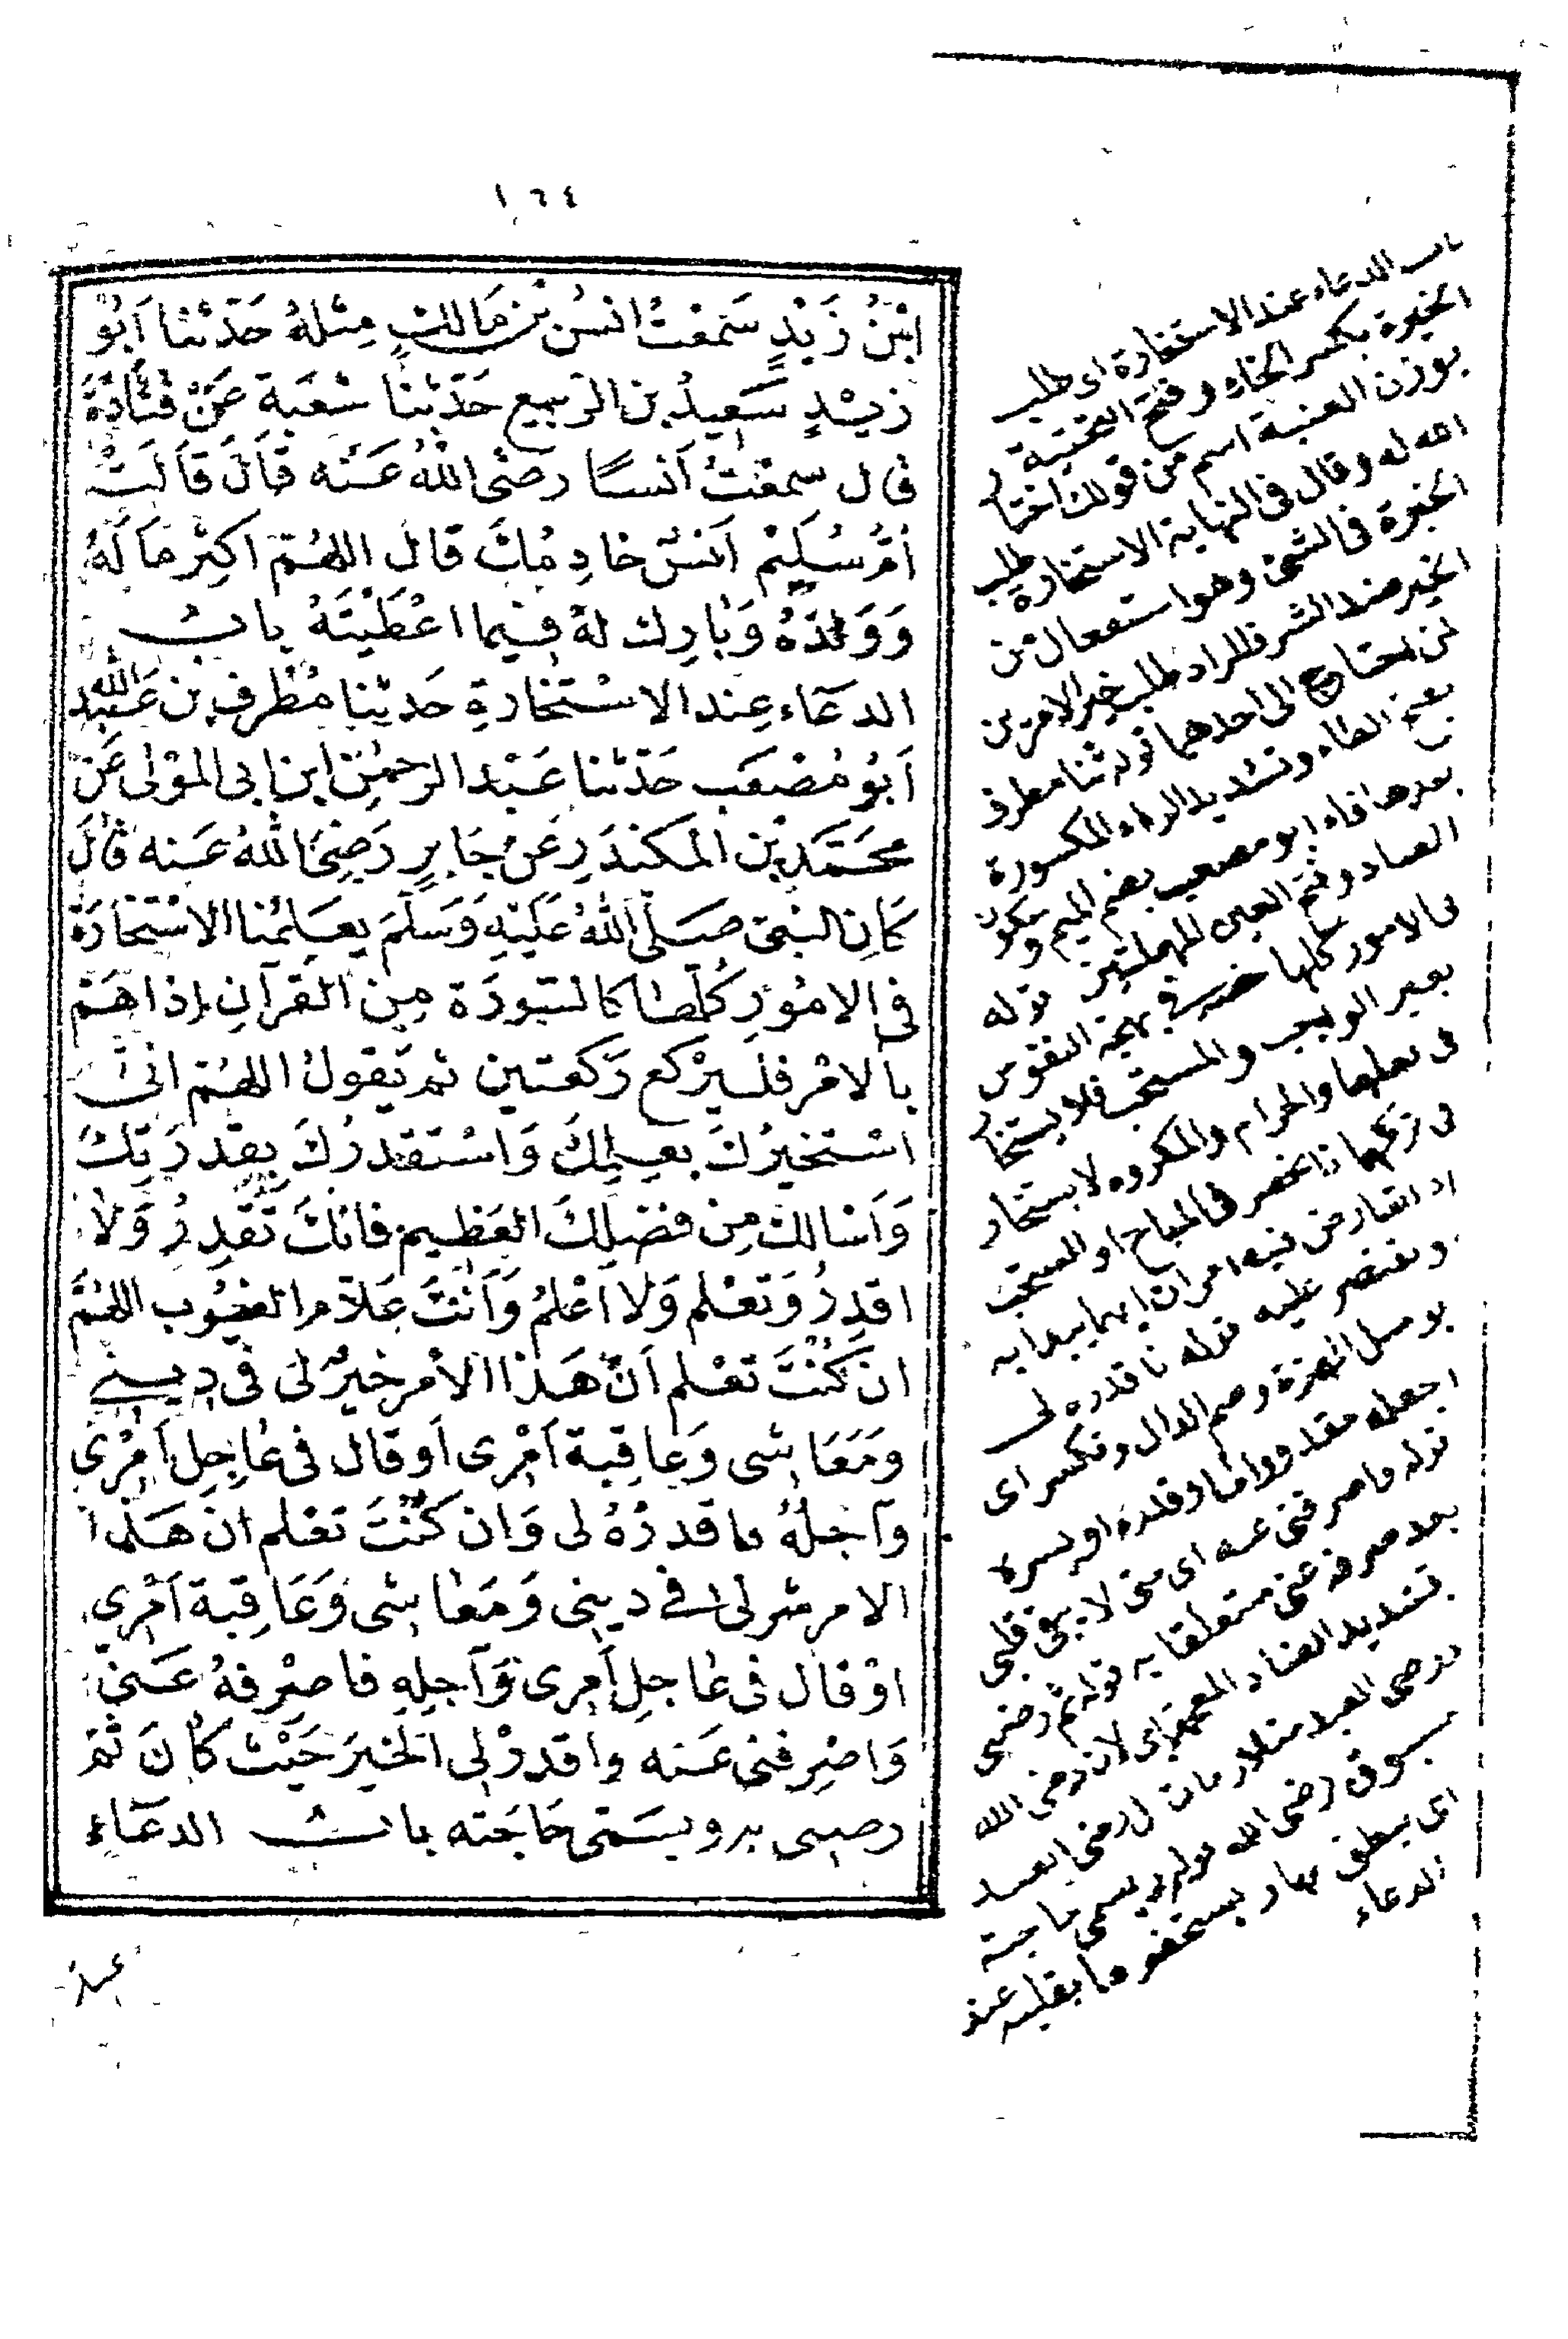 ١٦٤
ابْنُ زَيْدٍ سَمِعْتُ انَسُ بْن مَالكٍ مِثْلهُ حَدّثنا اَبُوْ
زيْدٍ سَعِيدُ بن الرّبيع حَدّثنا شُعْبَة عَنْ قتادَةَ
قال سمعْتُ اَنسًا رضَى اللهُ عَنْه قاَلَ قاَلتْ
اُمُّ سُلَيْم اَنسٌ خادِمُكَ قالَ اللهُمّ اكثِر مَالَهُ
وَوَلدَهُ وَبَارِك لهُ فيما اعْطَيْتَهُ بابُ
الدعَاء عِند الاسْتخارَةِ حَدثنا مُطرف بن عَبْد الله
اَبُو مُصْعَب حَدّثنا عَبْد الرحمٰن ابن ابى المَوْلى عَن
محَمَّد بْن المنكدَرِ عَنْ جَابرٍ رَضِىَ اللهُ عَنه قالَ
كاَن النبىّ صَلّى اللهُ عَلَيْهِ وَسَلّمَ يعَلمُنا الاسْتخارَةَ
فى الامُوْرِ كُلّها كالسّورَة مِن القرآن اِذا هَمّ
بالامْر فلْيرْكع رَكعتين ثم يَقولُ اللهُمّ انىّ
اسْتخيرُكَ بعِلمِكَ وَاسْتَقدرُكَ بقدرَتِكَ
وَاَسْالكَ مِن فضلِكَ العَظِيم فانكَ تَقدِرُ وَلا
اقدِرُ وَتَعْلم وَلا اعْلمُ وَاَنتَ عَلاّم الغيُوب اللهُمَّ
ان كُنْتَ تعْلم اَنّ هَذا الاَمْر خيرٌ لى فى دِينى
وَمَعَاشى وَعاقِبة اَمْرى اَو قال فى عَاجِلِ اَمْرِى
وآجلهُ فاقدرْهُ لى وَان كُنْتَ تعْلم انّ هَذا
الامر شر لى فى دينى وَمَعاشى وَعَاقِبة اَمْرى
اوْ قال فى عاجلِ اَمرى وَآجِلِهِ فاصْرِفهُ عَنىّ
وَاصْرِفنى عَنه واقدرْ لى الخيرَ حَيْث كانَ ثمّ
رضنى به ويسَمّى حَاجَته بابُ الدعَاء
باب الدعاء عند الاستخارة اى طلب
الخيرة بكسر الخاء وفتح التحتية
بوزن العنبة اسم من قولك اختار
الله له وقال فى النهاية الاستخارة طلب
الخيرة فى الشئ وهو استفعال من
الخير ضد الشر فالمراد طلب خير الامرين
لمن احتاج الى احدهما قوله ثنا مطرف
بفتح الطاء وتشديد الراء المكسورة
بعدها فاء ابو مصعب بضم الميم وسكون
الصاد وفتح العين المهملتين قوله
فى الامور كلها خصه فى بهجة النفوس
بغير الواجب والمستحب فلا يستخار
فى فعلهما والحرام والمكروه لا يستخار
فى تركهما فانحصر فى المباح او المستحب
اذا تعارض فيه امران ايهما يبدا به
ويقتصر عليه قوله فاقدره لى
بوصل الهمزة وضم الدال وتكسر اى
اجعله مقدورا لى او قدره او يسره
قوله واصرفنى عنه اى حتى لا يبقى قلبى
بعد صرفه عنى متعلقا به قوله ثم رضنى
بتشديد الضاد المعجمة اى لان رضى الله
ورضى العبد متلازمان لرضى العبد
مسبوق رضى الله قوله ويسمى حاجته
اى ينطق بها ويستحضرها بقلبه عند
الدعاء
عند